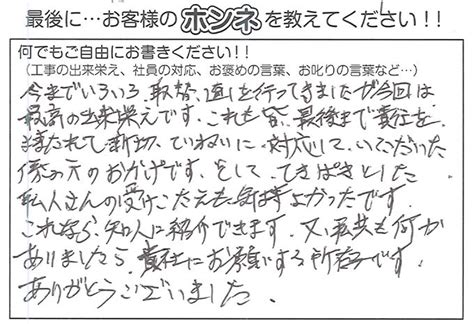 最後に…お客様のホンネを教えてください！！
何でもご自由にお書きください！！
（工事の出来栄え、社員の対応、お褒めの言葉、お叱りの言葉など…）
今までいろいろ、取替、直しを行ってきましたが今回は
最高の出来栄えです。これも皆、最後まで責任を
持たれて親切、ていねいに対応して、いただいた
係の方のおかげです。そして、てきぱきとした
さんの受けこたえも気持よかったです。
これなら、知人に紹介できます。又、私共も何か
ありましたら、貴社にお願いする所存です。
ありがとうございました。